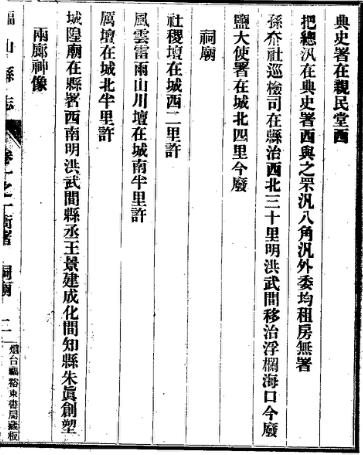 典史署在親民堂西
把總汛在典史署西與之罘汛八角汛外委均租房無署
孫夼社巡檢司在縣治西北三十里明洪武間移治浮欄海口今廢
鹽大使署在城北四里今廢
祠廟
社稷壇在城西二里許
風雲雷雨山川壇在城南半里許
厲壇在城北半里許
城隍廟在縣署西南明洪武間縣丞王景建成化間知縣朱眞創塑
兩廊神像
福山縣志
卷一之一
祠廟
二
煙台福裕東書局藏板